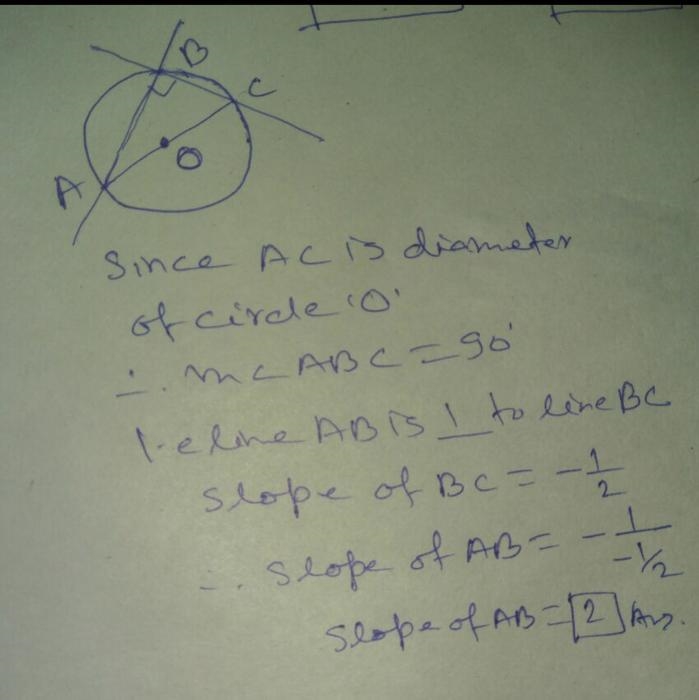 B
C
O
A
Since AC is diameter
of circle 'O'
∴ m∠ABC = 90°
i.e line AB is ⊥ to line BC
Slope of BC = -1/2
∴ Slope of AB = -1/(-1/2)
Slope of AB = 2 Ans.